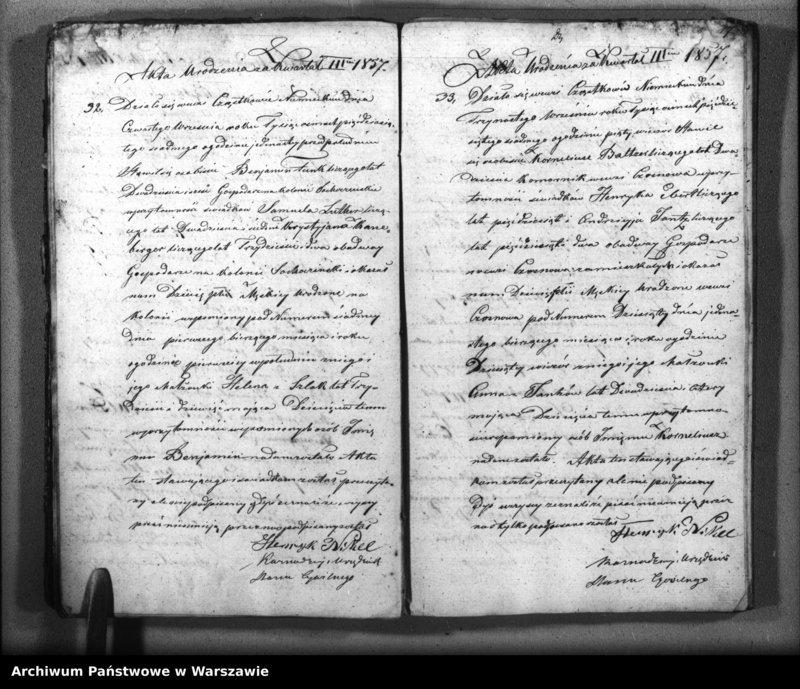 Akta Urodzenia za Kwartał III 1857.
32. Działo się we wsi Cząstkowie Niemieckim dnia
Czwartego Września roku Tysiąc ośmset pięćdziesią-
tego siódmego o godzinie jedenastej przed południem
Stawił się osobiście Benjamin liczący lat
Dwadzieścia Gospodarz na kolonii
w przytomności świadków Samuela Luther liczą-
cego lat Dwadzieścia i Krystyjana Kane-
berger liczącego lat Trzydzieści dwa obadwaj
Gospodarze na Kolonii i okazał
nam Dziecię płci Męzkiej urodzone na
kolonii wspomnionej pod Numerem siódmym
dnia pierwszego bieżącego miesiąca i roku
o godzinie pierwszej w południe z niego i
jego Małżonki Helena z Szlak lat Trzy-
dzieści mająca. Dziecięciu temu
w przytomności wspomnionych osób Imię
mu Benjamin nadane zostało. Akt
ten stawającemu i świadkom został przeczyta-
ny ale nie podpisany gdyż oznajmili iż
pisać nieumieją przez nas podpisany został
Henryk Nikel
Urzędnik
Stanu Cywilnego
Akta Urodzenia za Kwartał III 1857.
33. Działo się we wsi Cząstkowie Niemieckim dnia
Trzynastego Września roku Tysiąc ośmset pięćdzie-
siątego siódmego o godzinie piątej wieczór Stawił
się osobiście Korneliusz Baltzer liczący lat Dwa-
dzieścia Komornik we wsi Czosnowie w przy-
tomności świadków Henryka Ebert liczącego
lat pięćdziesiąt i Andrzeja Jantz liczącego
lat pięćdziesiąt dwa obadwaj Gospodarze
we wsi Czosnowie zamieszkałych i okazał
nam Dziecię płci Męzkiej urodzone we wsi
Czosnowie pod Numerem Dziesiątym dnia jedena-
stego bieżącego miesiąca i roku o godzinie
Dziewiątej wieczór z niego i jego Małżonki
Anna z Janków lat Dwadzieścia cztery
mająca Dziecięciu temu w przytomno-
wspomnionych osób Imię mu Korneliusz
nadane zostało. Akt ten stawającemu i świad-
kom został przeczytany ale nie podpisany
gdyż wszyscy oznajmili iż pisać nieumieją przez
nas tylko podpisany został
Henryk Nikel
Urzędnik
Stanu Cywilnego
Archiwum Państwowe w Warszawie